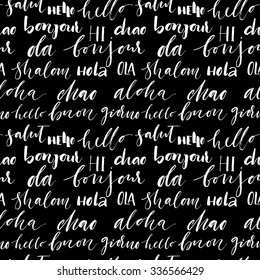 salut HEllO hello salut HEllO hello
bonjour HI chao bonjour HI chao
da bonjour da bonjour
shalom Hola OlA shalom Hola OlA
aloha chao aloha chao
hello buon giorno hello buon giorno hello
salut HEllO hello salut HEllO hello
bonjour HI chao bonjour HI chao
da bonjour da bonjour
shalom Hola OlA shalom Hola OlA
aloha chao aloha chao
hello buon giorno hello buon giorno hello
shutterstock.com · 336566429